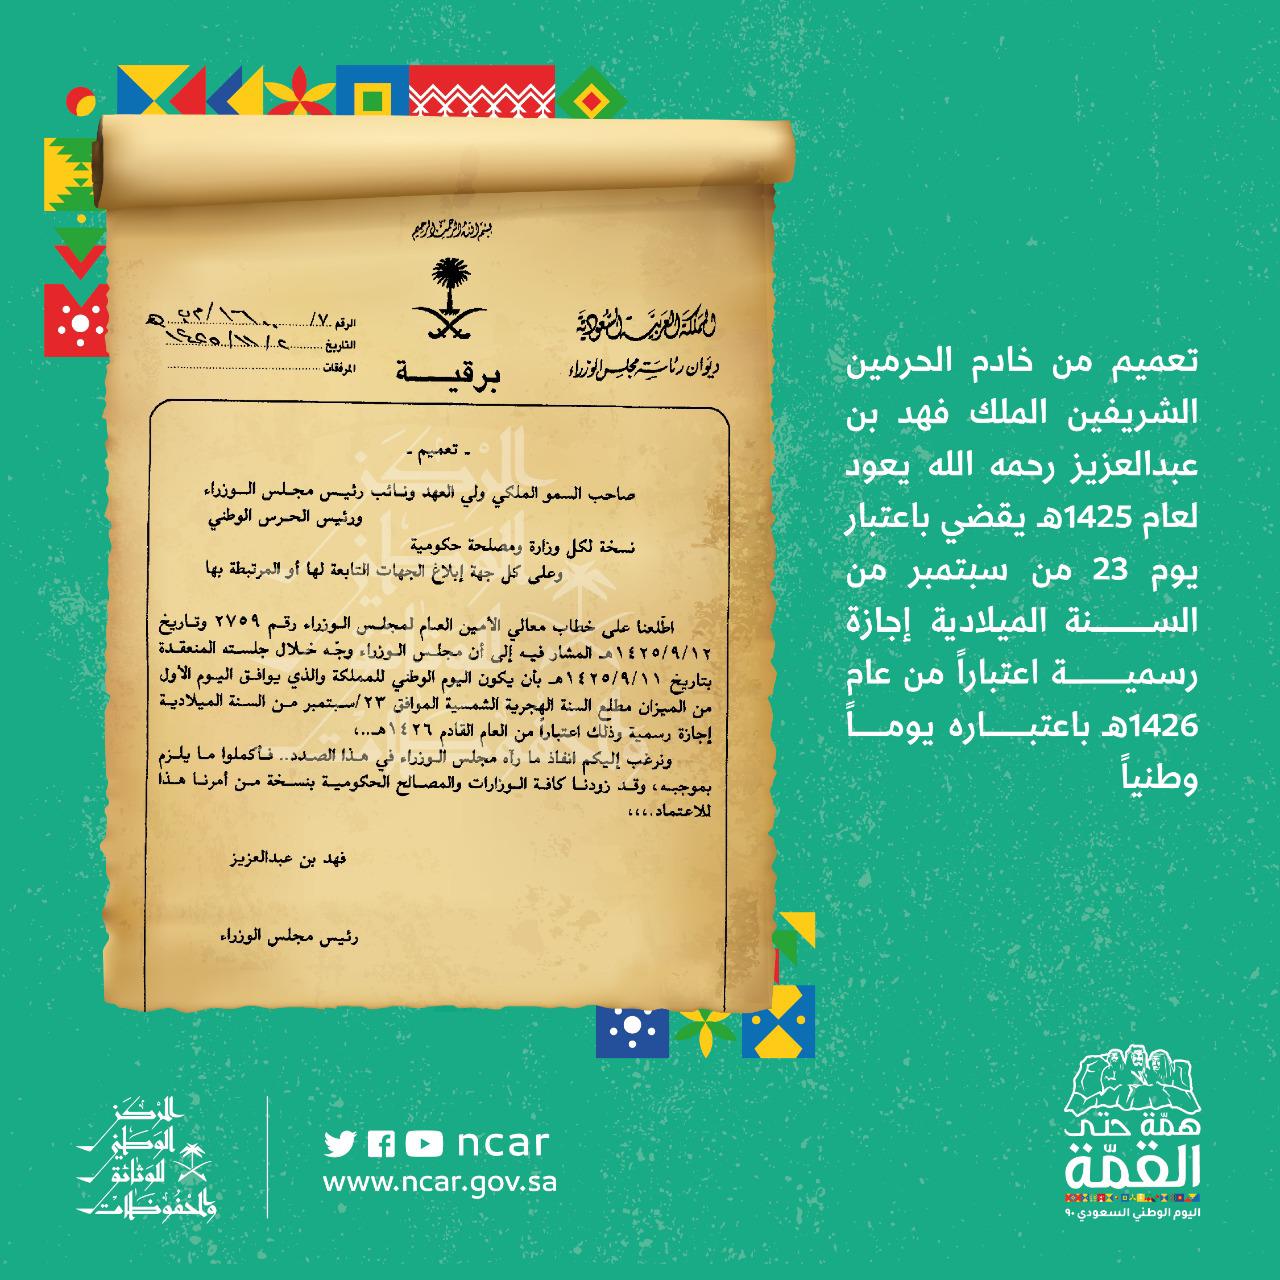 بسم الله الرحمن الرحيم
المملكة العربية السعودية
ديوان رئاسة مجلس الوزراء
برقية
الرقم ٧/
التاريخ ٢ / ١١ / ١٤٢٥
المرفقات
ـ تعميم ـ
صاحب السمو الملكي ولي العهد ونائب رئيس مجلس الوزراء
ورئيس الحرس الوطني
نسخة لكل وزارة ومصلحة حكومية
وعلى كل جهة إبلاغ الجهات التابعة لها أو المرتبطة بها
اطّلعنا على خطاب معالي الأمين العام لمجلس الوزراء رقم ٢٧٥٩ وتاريخ
١٤٢٥/٩/١٢هـ المشار فيه إلى أن مجلس الوزراء وجّه خلال جلسته المنعقدة
بتاريخ ١٤٢٥/٩/١١هـ بأن يكون اليوم الوطني للمملكة والذي يوافق اليوم الأول
من الميزان مطلع السنة الهجرية الشمسية الموافق ٢٣/سبتمبر من السنة الميلادية
إجازة رسمية وذلك اعتباراً من العام القادم ١٤٢٦هـ..،
ونرغب إليكم انفاذ ما رآه مجلس الوزراء في هذا الصدد.. فأكملوا ما يلزم
بموجبه، وقد زودنا كافة الوزارات والمصالح الحكومية بنسخة من أمرنا هذا
للاعتماد.،،،
فهد بن عبدالعزيز
رئيس مجلس الوزراء
تعميم من خادم الحرمين
الشريفين الملك فهد بن
عبدالعزيز رحمه الله يعود
لعام 1425هـ يقضي باعتبار
يوم 23 من سبتمبر من
الســـنة الميلادية إجازة
رسميـــة اعتباراً من عام
1426هـ باعتبــاره يومــاً
وطنياً
المركز
الوطني
للوثائق
والمحفوظات
ncar
www.ncar.gov.sa
همّة حتى
القمّة
اليوم الوطني السعودي ٩٠